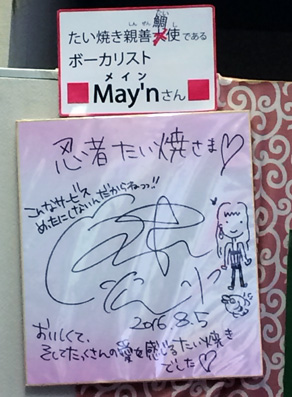 たい焼き親善鯛使である
ボーカリスト
メイン
May'nさん
忍者たい焼さま♡
こんなサービス
めったにしないんだからねっ!!
2016.8.5
おいしくて、
そしてたくさんの愛を感じるたい焼き
でした♡